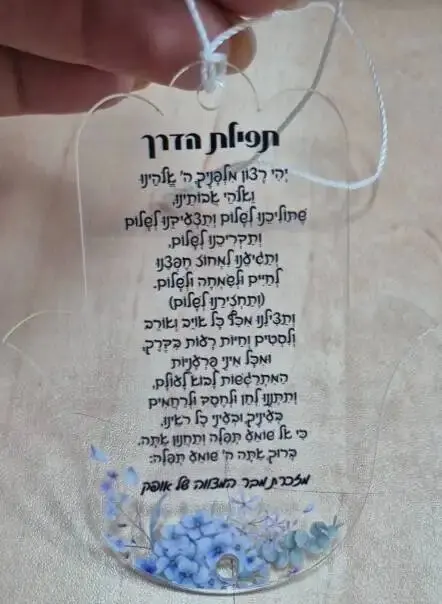 תפילת הדרך
יְהִי רָצוֹן מִלְּפָנֶיךָ ה' אֱלֹהֵינוּ
וֵאלֹהֵי אֲבוֹתֵינוּ,
שֶׁתּוֹלִיכֵנוּ לְשָׁלוֹם וְתַצְעִידֵנוּ לְשָׁלוֹם
וְתַדְרִיכֵנוּ לְשָׁלוֹם,
וְתַגִּיעֵנוּ לִמְחוֹז חֶפְצֵנוּ
לְחַיִּים וּלְשִׂמְחָה וּלְשָׁלוֹם.
(וְתַחְזִירֵנוּ לְשָׁלוֹם)
וְתַצִּילֵנוּ מִכַּף כָּל אוֹיֵב וְאוֹרֵב
וְלִסְטִים וְחַיּוֹת רָעוֹת בַּדֶּרֶךְ,
וּמִכָּל מִינֵי פֻּרְעָנִיּוֹת
הַמִּתְרַגְּשׁוֹת לָבוֹא לָעוֹלָם,
וְתִתְּנֵנוּ לְחֵן וּלְחֶסֶד וּלְרַחֲמִים
בְּעֵינֶיךָ, וּבְעֵינֵי כָל רוֹאֵינוּ,
כִּי אֵל שׁוֹמֵעַ תְּפִלָּה וְתַחֲנוּן אַתָּה.
בָּרוּךְ אַתָּה ה' שׁוֹמֵעַ תְּפִלָּה:
מזכרת מבר המצווה של אופק